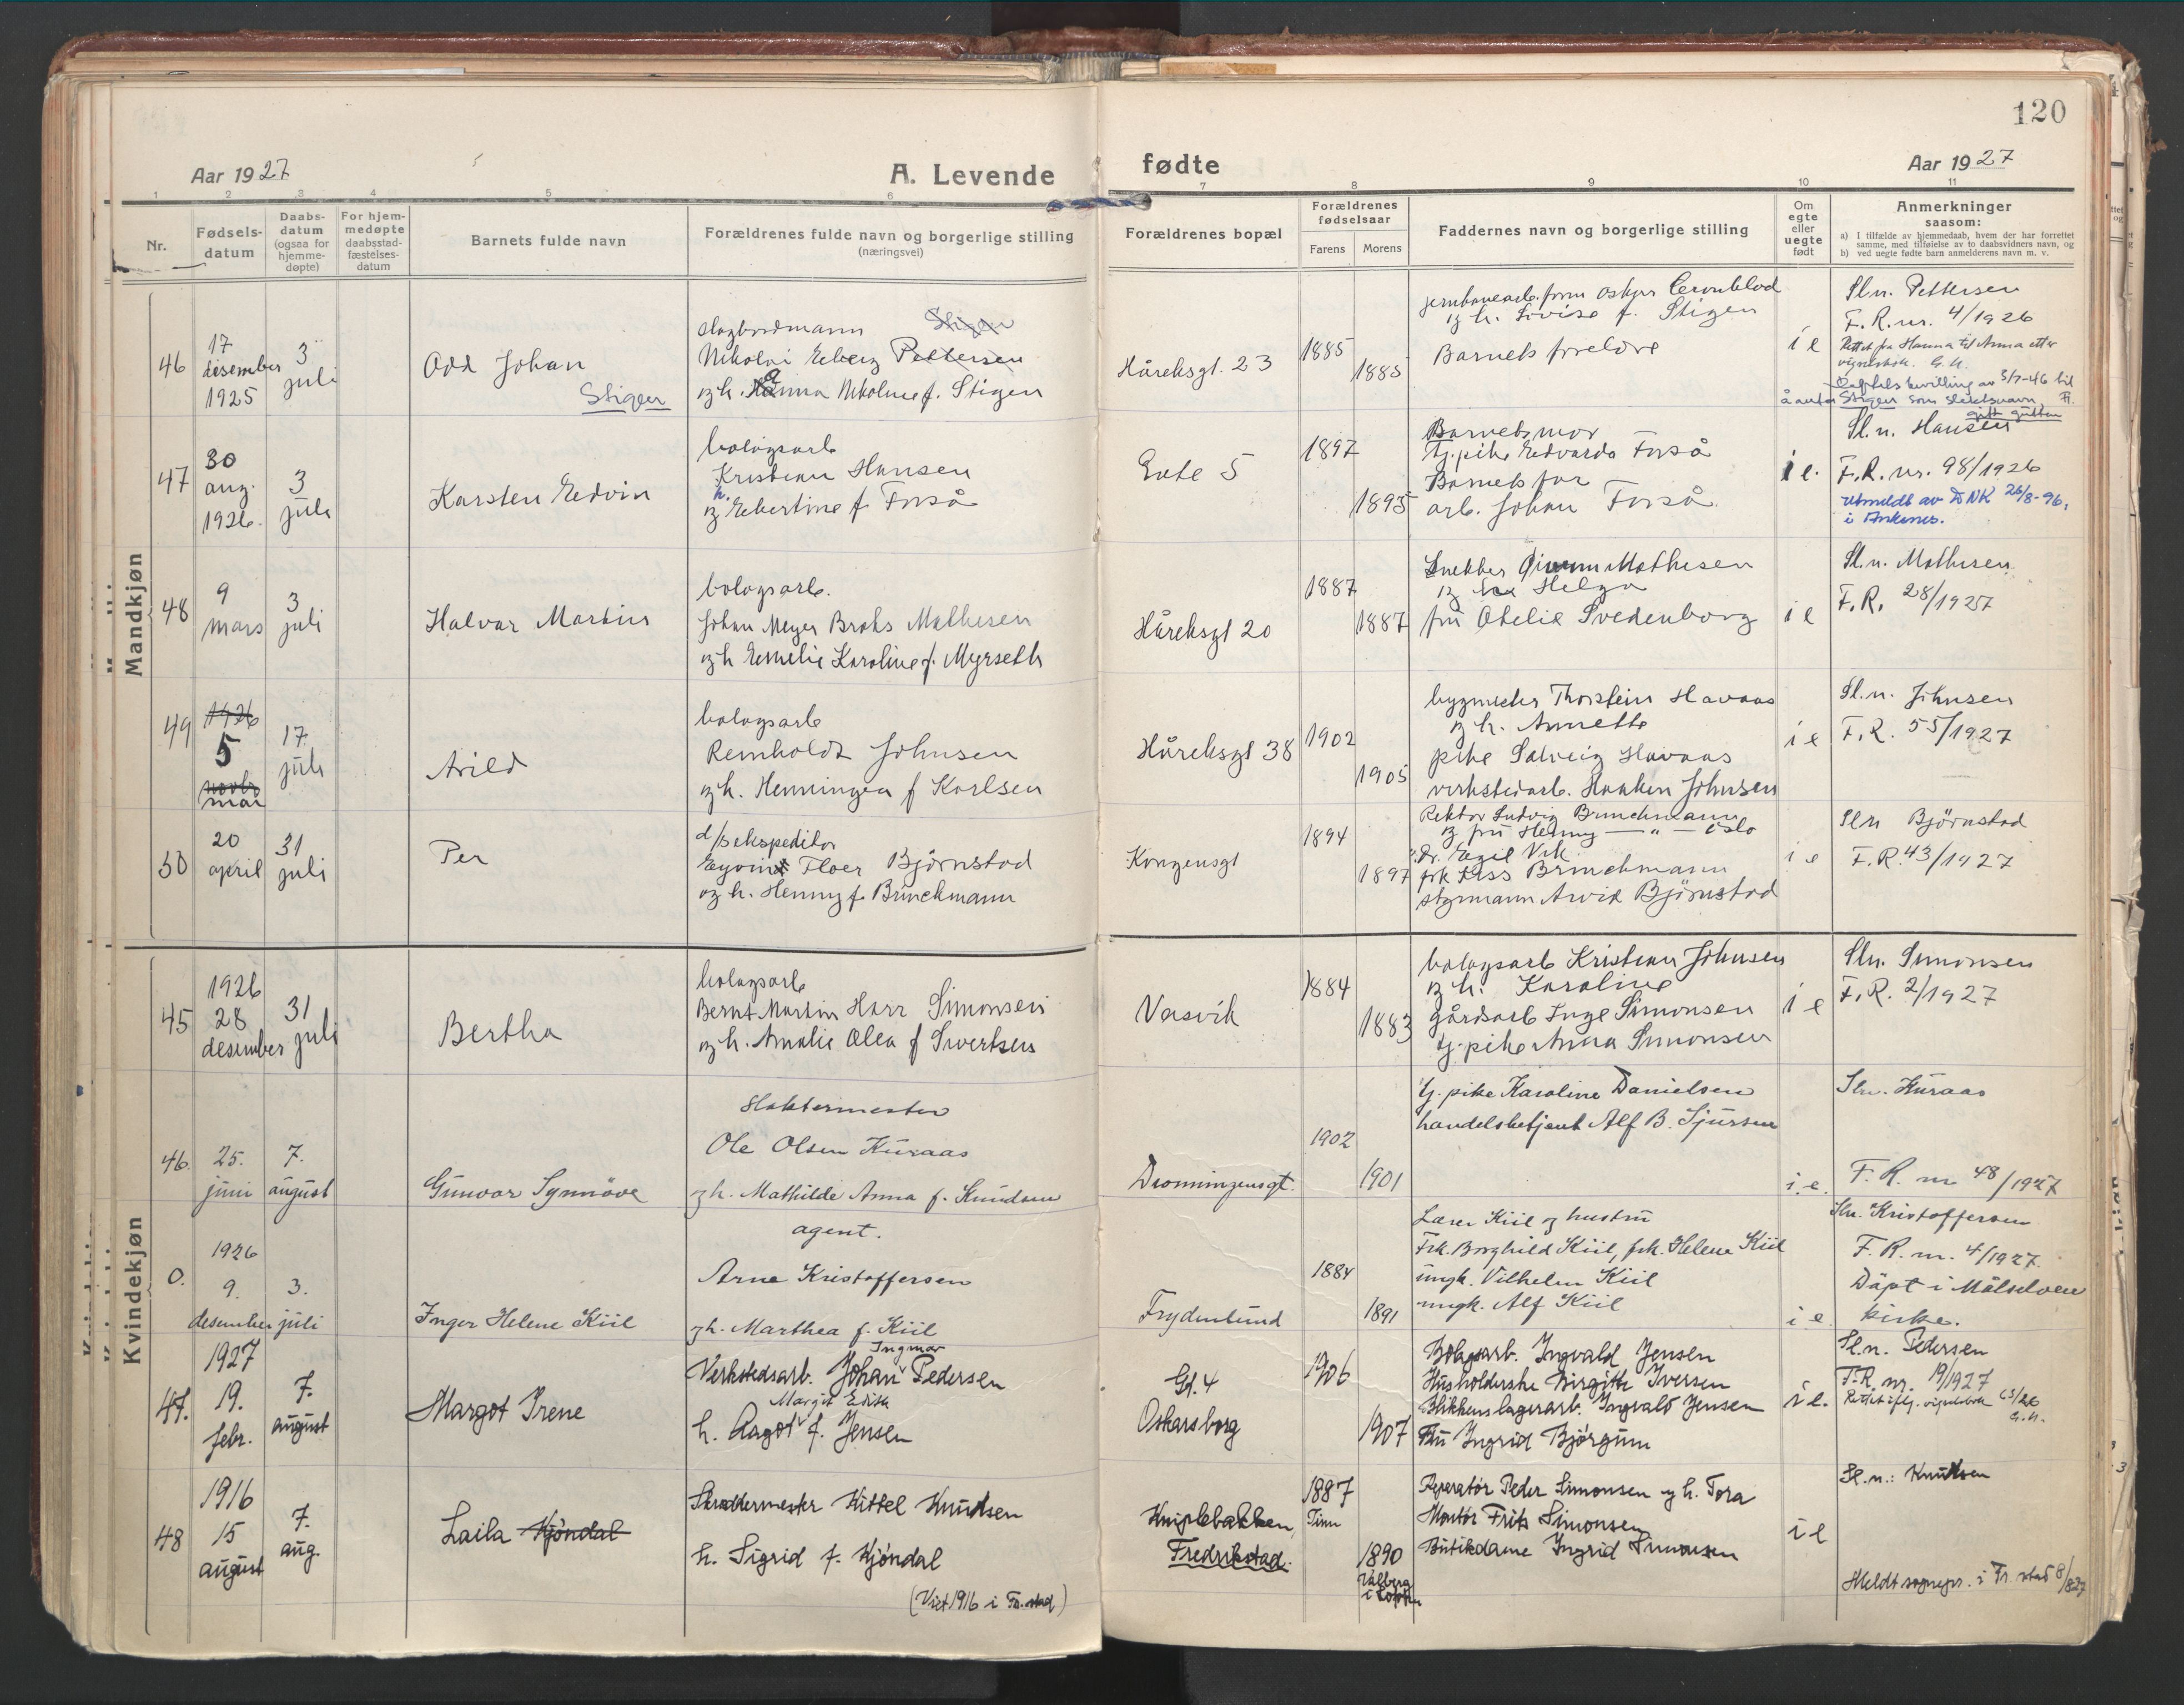 120
Aar 1927
A. Levende
fødte
Aar 1927
1 2 3 4 5 6 7 8 9 10 11
Nr.
Fødsels-
datum
Daabs-
datum
(ogsaa for
hjemme-
døpte)
For hjem-
medøpte
daabsstad-
fæstelses-
datum
Barnets fulde navn
Forældrenes fulde navn og borgerlige stilling
(næringsvei)
Forældrenes bopæl
Forældrenes
fødselsaar
Farens
Morens
Faddernes navn og borgerlige stilling
Om
egte
eller
uegte
født
Anmerkninger
saasom:
a) I tilfælde av hjemmedaab, hvem der har forrettet
samme, med tilføielse av to daabsvidners navn, og
b) ved uegte fødte barn anmelderens navn m. v.
Mandkjøn
46
17
desember
1925
3
juli
Odd Johan
Stigen
Stigen
Nikolai Pettersen
og h. Anna Nikoline f. Stigen
Håreksgt. 23
1885
1885
og h. Lovise f. Stigen
Barnets foreldre
i e
Sl.n. Pettersen
F.R. nr. 4/1926
Rettet fra Hanna til Anna etter
vigselsbok. G. H.
bevilling av 5/7-46 til
å anta Stigen som slektsnavn
47
30
aug.
1926
3
juli
Karsten Edvin
bolagsarb
Kristian Hansen
og h. Edvartine f. Forså
Gate 5
1897
1895
Barnets mor
Tj.pike Edvarda Forså
Barnets far
arb. Johan Forså
i e.
gitt gutten
Sl.n. Hansen
F.R. nr. 98/1926
utmeldt av DNK 26/8-96,
i Ankenes.
48
9
mars
3
juli
Halvar Martin
bolagsarb.
Johan Meyer Brochs Mathisen
og h Emelie Karoline f. Myrseth
Håreksgt 20
1887
1887
Snekker Mathisen
og Helga
fru Otelie Svedenborg
i e
Sl.n. Mathisen
F.R. 28/1927
49
1926
5
novbr
mai
17
juli
Arild
bolagsarb
Reinholdt Johnsen
og h. Henningea f Karlsen
Håreksgt 38
1902
1905
bygmester Thorstein Havaas
og h. Annette
pike Solveig Havaas
verkstedarb. Haaken Johnsen
i e
Sl.n. Johnsen
F.R. 55/1927
50
20
april
31
juli
Per
d/sekspeditør
Eyvind Floer Bjørnstad
og h. Henny f. Brinchmann
Kongensgt
1894
1897
Rektor Ludvig Brinchmann
og fru Henny — " — Oslo
Dr. Egil Vik
frk Liss Brinchmann
styrmann Arvid Bjørnstad
i e
Sl.n Bjørnstad
F.R. 43/1927
Kvindekjøn
45
1926
28
desember
31
juli
Bertha
bolagsarb
Bernt Martin Harr Simonsen
og h. Amalie Olea f Sivertsen
Vasvik
1884
1883
bolagsarb Kristian Johnsen
og h. Karoline
gårdsarb Inge Simonsen
tj. pike Anna Simonsen
i e
Sl.n. Simonsen
F.R. 2/1927
46.
25.
juni
7.
august
Gunvor Synnöve
Slaktermester
Ole Olsen Kuraas
og h. Mathilde Anna f. Knudsen
Dronningensgt.
1902
1901
Tj. pike Karoline Danielsen
handelsbetjent Alf B. Sjursen
i. e.
Sl.n. Kuraas
F. R. nr 48/1927
0.
1926
9.
desember
3.
juli
Inger Helene Kiil
agent.
Arne Kristoffersen
og h. Marthea f. Kiil
Frydenlund
1884
1891
Lærer Kiil og hustru
Frk. Borghild Kiil, frk. Helene Kiil
ungk. Vilhelm Kiil
ungk. Alf Kiil
i e.
Sl.n. Kristoffersen
F. R. nr. 4/1927.
Döpt i Målselven
kirke.
47.
1927
19.
febr.
7.
august
Margot Irene
Ingmar
Verkstedsarb. Johan Pedersen
Margit Edith
h. Aagot f. Jensen
Gt. 4
Oskarsborg
1906
1907
Bolagsarb. Ingvald Jensen
Husholderske Birgitte Iversen
Blikkenslagerarb. Ingvald Jensen
Fru Ingrid Bjørgum
i e.
Sl.n. Pedersen
F.R. nr. 19/1927
Rettet iflg. vigselsbok 63/26
G. H.
48
1916
15
august
7.
aug.
Laila Kjöndal
Skreddermester Kittel Knudsen
h. Sigrid f. Kjöndal
(Viet 1916 i Fr.stad)
Kniplebakken,
Fredrikstad.
1887
Tinn
1890
Reparatør Peder Simonsen og h. Tora
Montör Frits Simonsen
Butikdame Ingrid Simonsen
i e
Sl.n.: Knudsen
Meldt sognepr. i Fr.stad 8/8 27